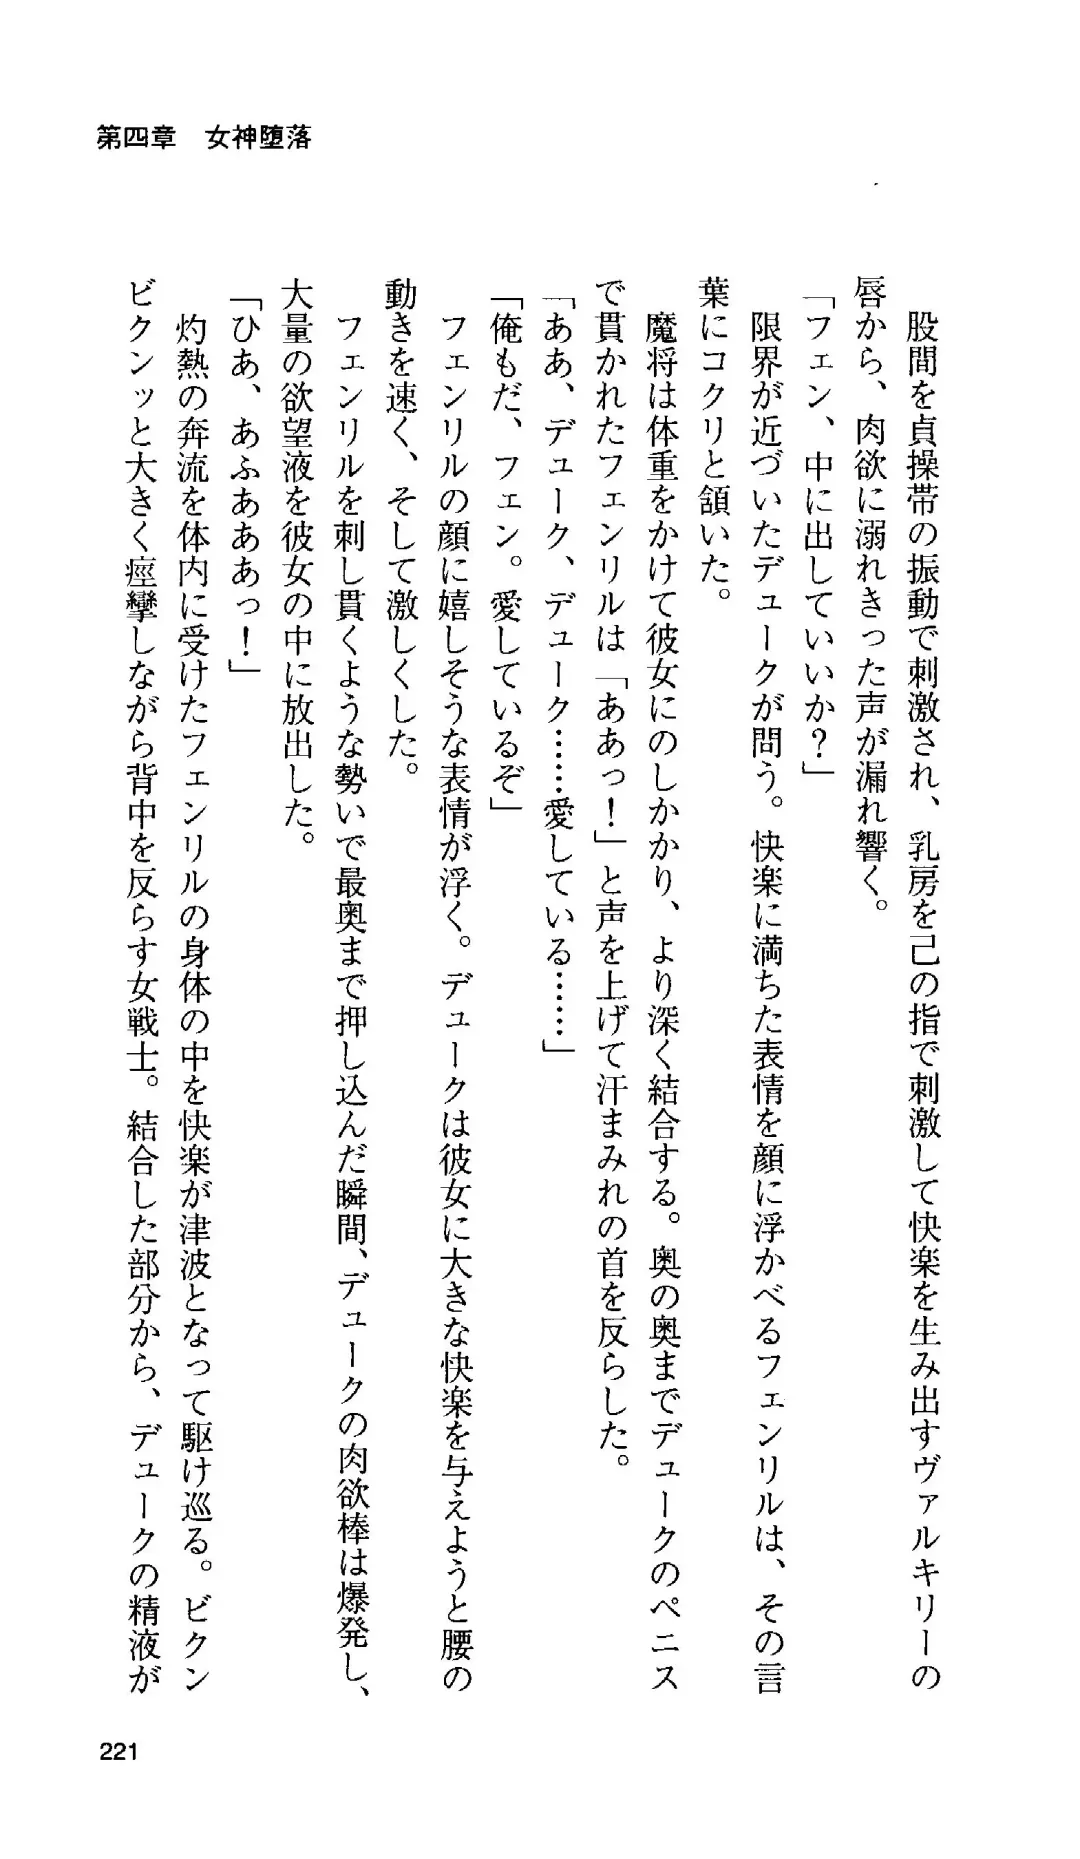 第四章　女神堕落
　股間を貞操帯の振動で刺激され、乳房を己の指で刺激して快楽を生み出すヴァルキリーの
唇から、肉欲に溺れきった声が漏れ響く。
「フェン、中に出していいか？」
　限界が近づいたデュークが問う。快楽に満ちた表情を顔に浮かべるフェンリルは、その言
葉にコクリと頷いた。
　魔将は体重をかけて彼女にのしかかり、より深く結合する。奥の奥までデュークのペニス
で貫かれたフェンリルは「ああっ！」と声を上げて汗まみれの首を反らした。
「ああ、デューク、デューク……愛している……」
「俺もだ、フェン。愛しているぞ」
　フェンリルの顔に嬉しそうな表情が浮く。デュークは彼女に大きな快楽を与えようと腰の
動きを速く、そして激しくした。
　フェンリルを刺し貫くような勢いで最奥まで押し込んだ瞬間、デュークの肉欲棒は爆発し、
大量の欲望液を彼女の中に放出した。
「ひあ、あふあああっ！」
　灼熱の奔流を体内に受けたフェンリルの身体の中を快楽が津波となって駆け巡る。ビクン
ビクンッと大きく痙攣しながら背中を反らす女戦士。結合した部分から、デュークの精液が
221